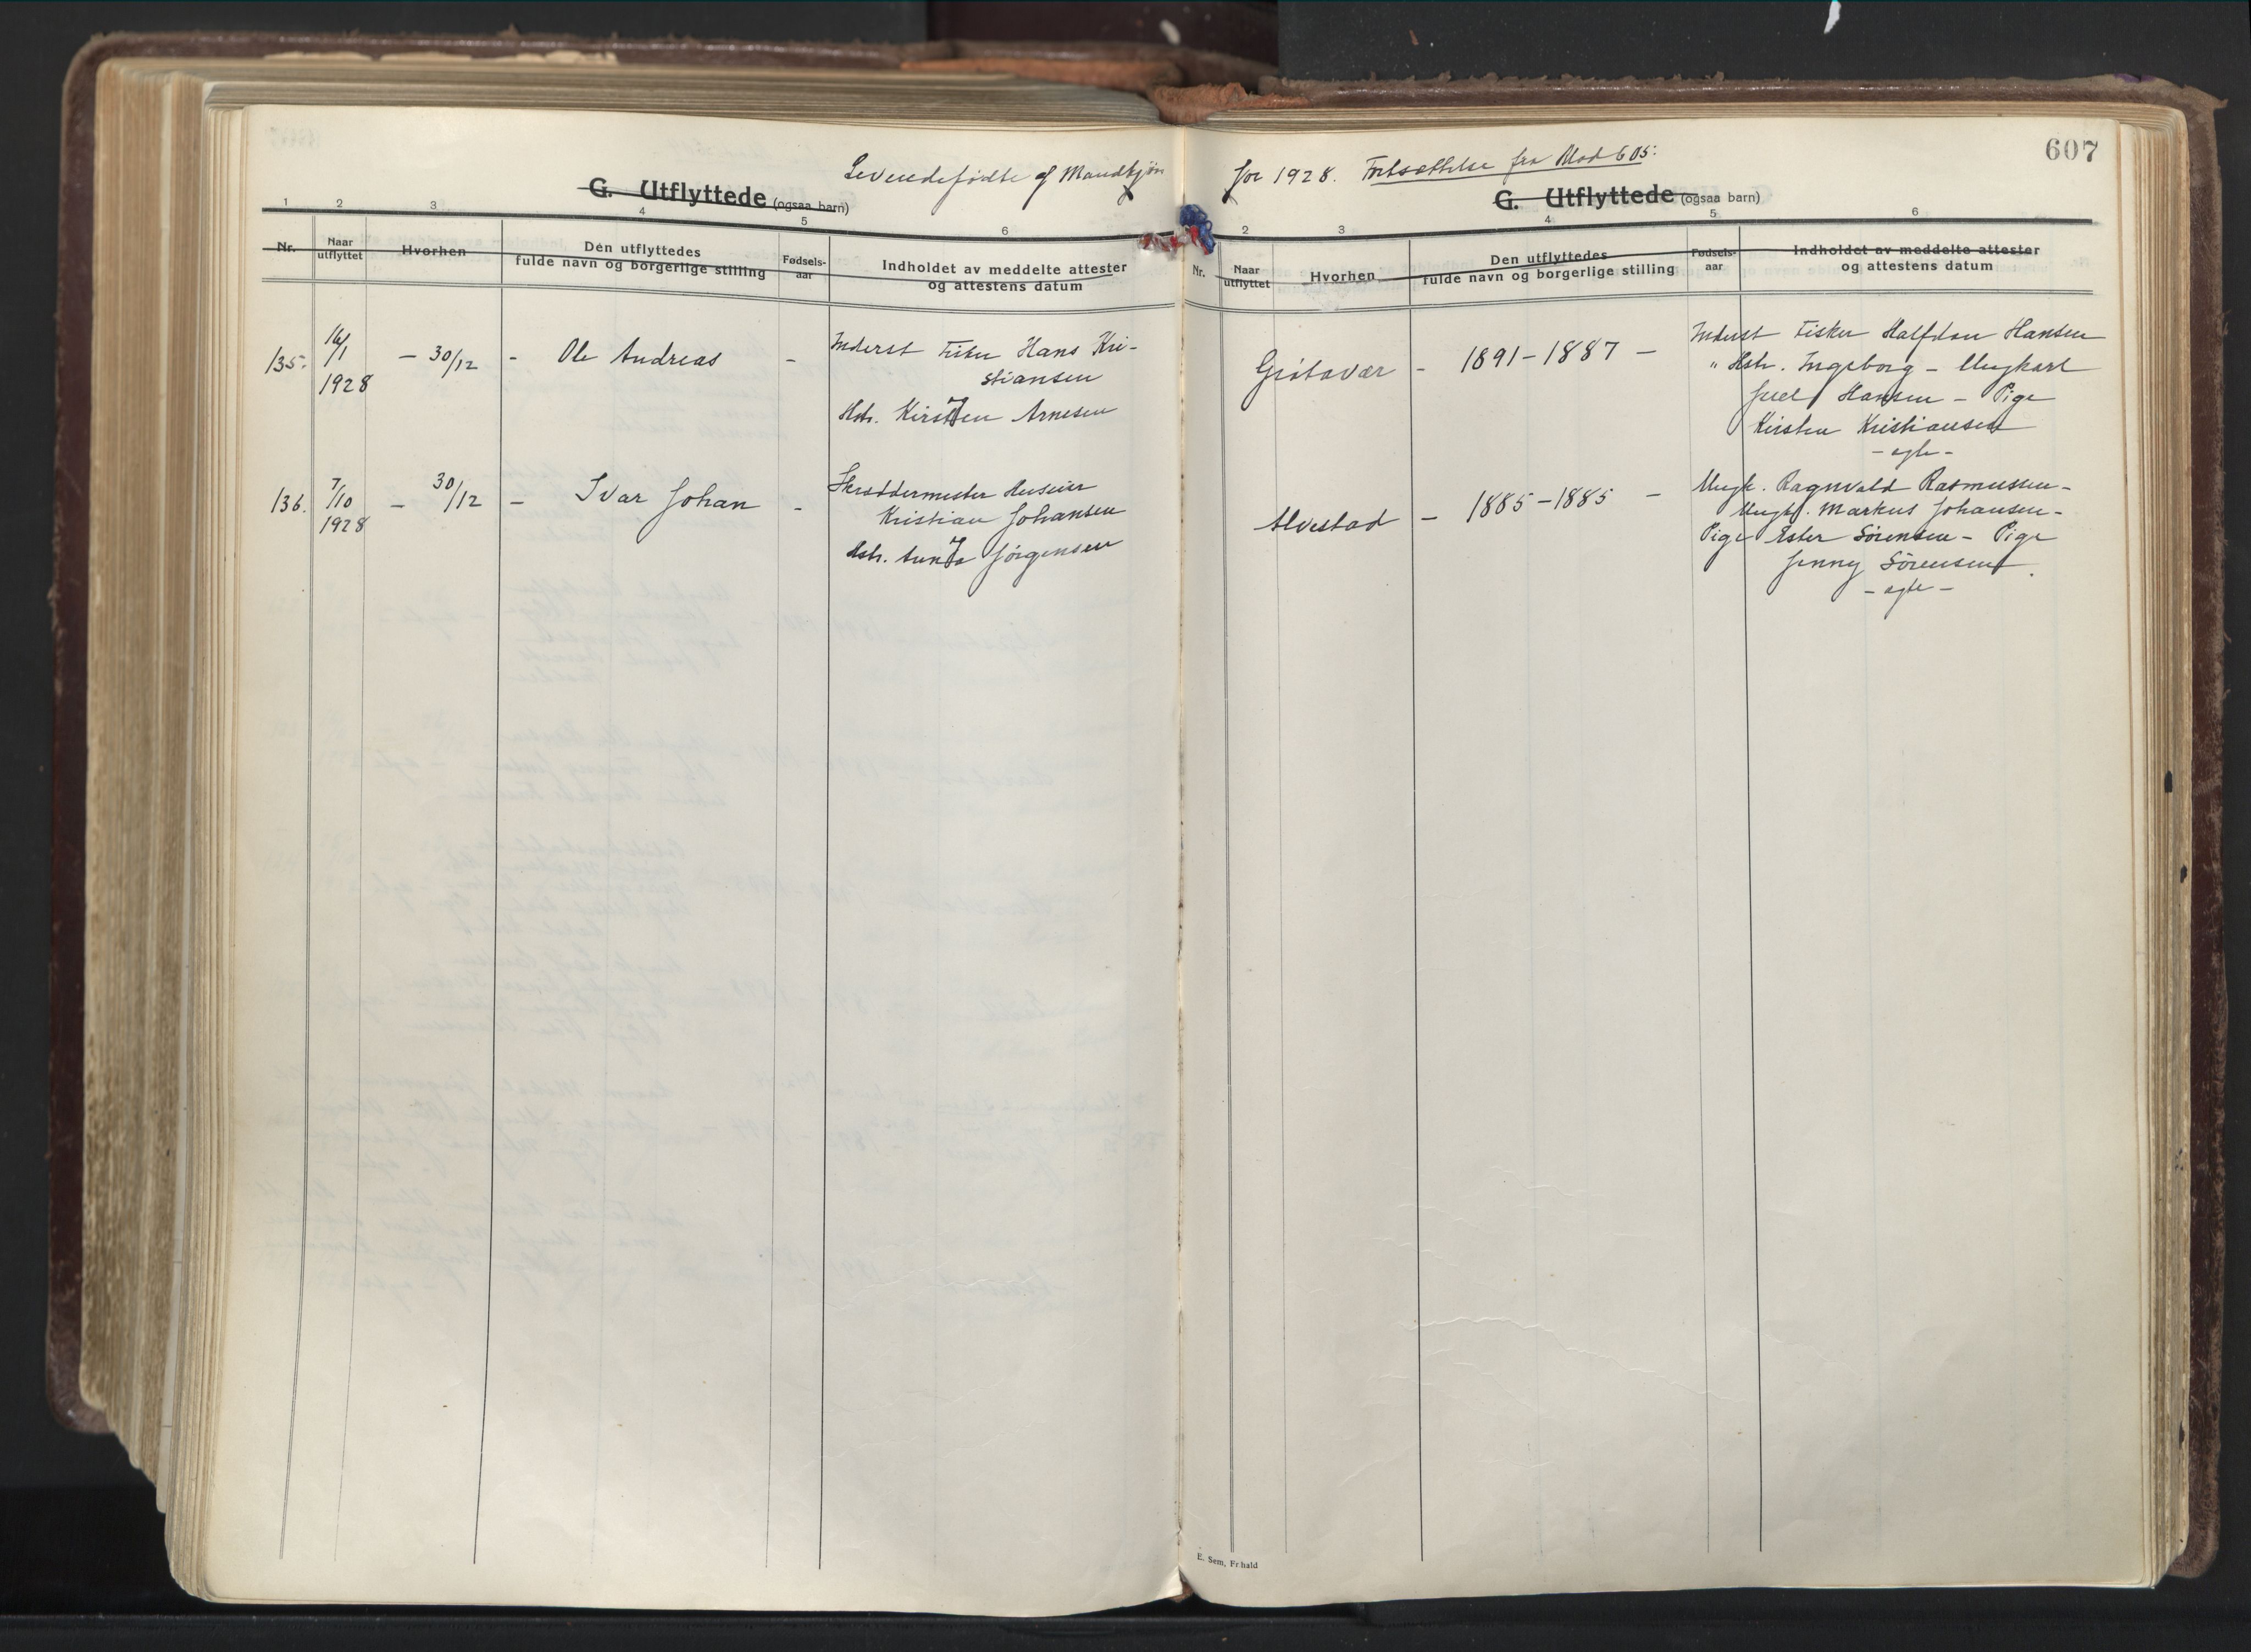 Levendefødte af Mandkjøn
G. Utflyttede (ogsaa barn)
1 2 3 4 5 6
Nr. Naar utflyttet Hvorhen Den utflyttedes fulde navn og borgerlige stilling Fødsels-aar Indholdet av meddelte attester og attestens datum
135. 16/1 1928 - 30/12 - Ole Andreas - Inderst Fisker Hans Kri-
stiansen
Hstr. Kirsten Arnesen
136. 7/10 1928 - 30/12 - Ivar Johan - Skræddermester Huseier
Kristian Johansen
Hstr. Anna Jørgensen
607
for 1928. Fortsættelse fra Blad 605.
G. Utflyttede (ogsaa barn)
2 3 4 5 6
Nr. Naar utflyttet Hvorhen Den utflyttedes fulde navn og borgerlige stilling Fødsels-aar Indholdet av meddelte attester og attestens datum
Grøtavær - 1891-1887 - Inderst Fisker Halfdan Hansen
" Hstr. Ingeborg - Ungkarl
Hansen - Pige
Kirsten Kristiansen
- egte -
Alvestad - 1885-1885 - Ungk. Ragnvald Rasmussen -
Ungk. Markus Johansen -
Pige Ester Sörensen - Pige
Jenny Sörensen.
- egte -
E. Sem, Fr.hald